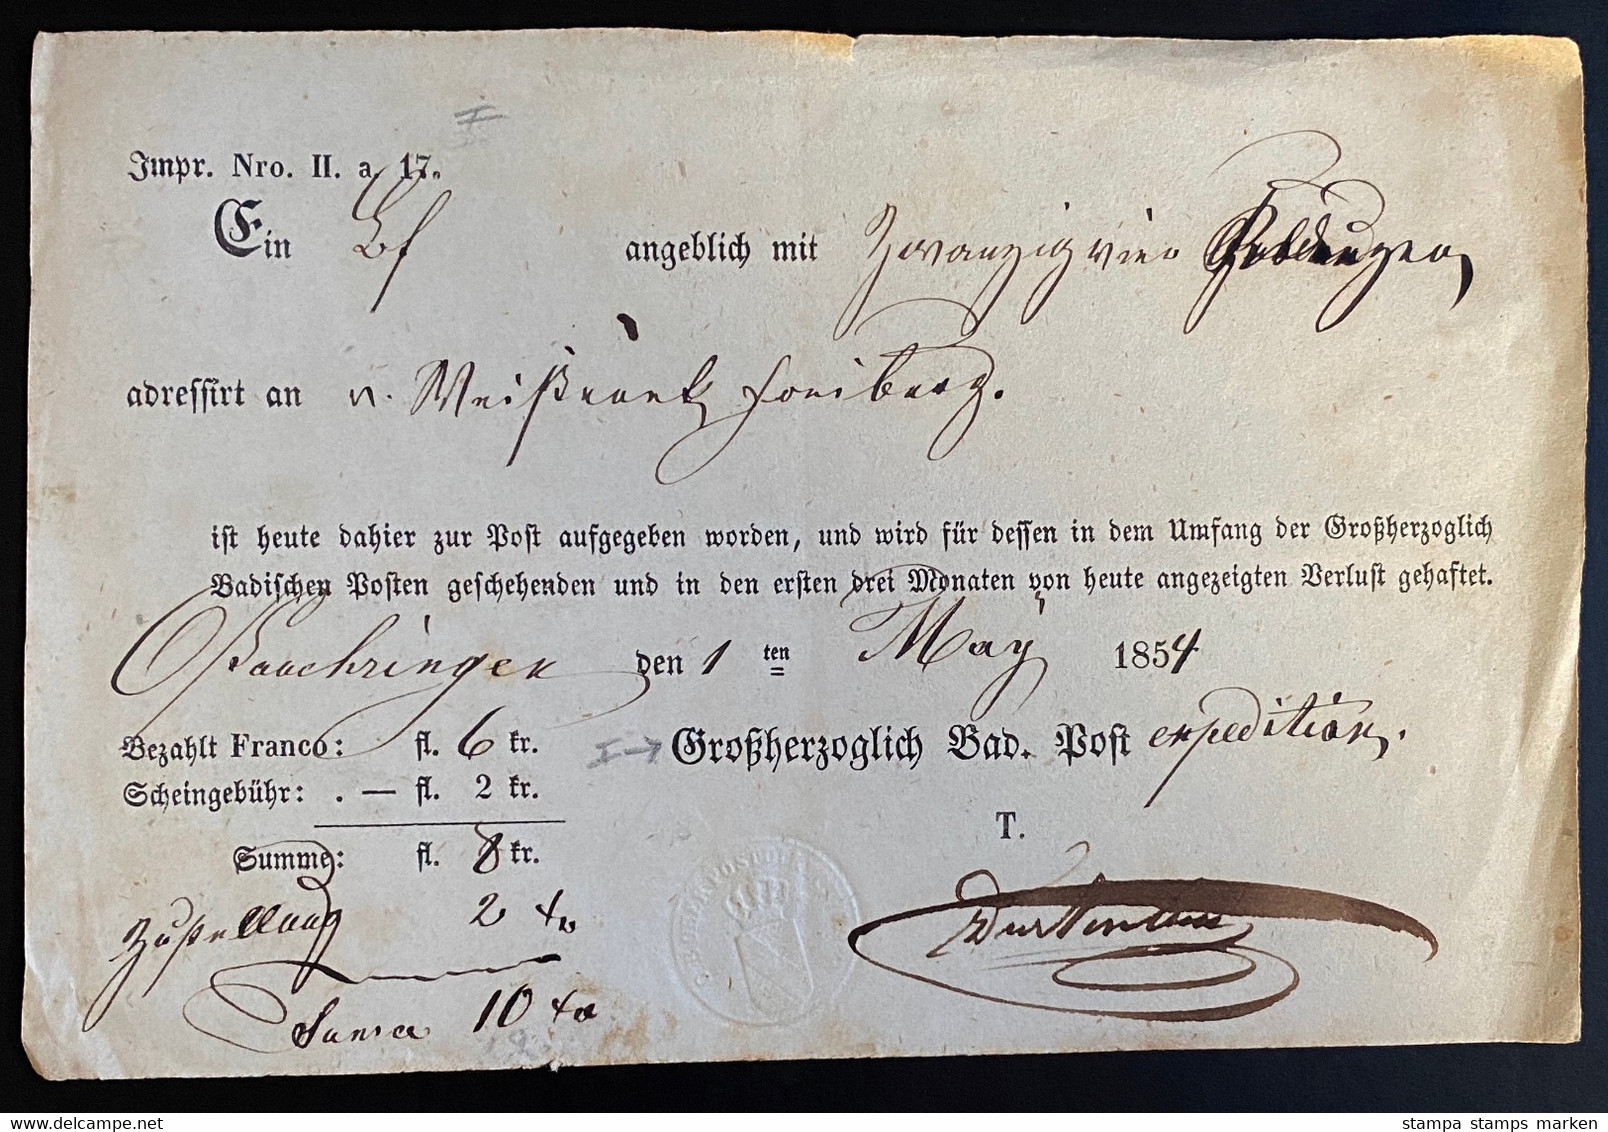 Impr. Nro. II. a. 17.
Ein Bf angeblich mit Zwanzig vier
adressirt an v. Weißeneck Freiberg.
ist heute dahier zur Post aufgegeben worden, und wird für dessen in dem Umfang der Großherzoglich
Badischen Posten geschehenden und in den ersten drei Monaten von heute angezeigten Verlust gehaftet.
den 1 ten May 1854
Bezahlt Franco: fl. 6 kr. Großherzoglich Bad. Post expedition.
Scheingebühr: . — fl. 2 kr.
T.
Summe: fl. 8 kr.
Zustellung 2 kr
Summe 10 kr
stampa stamps marken